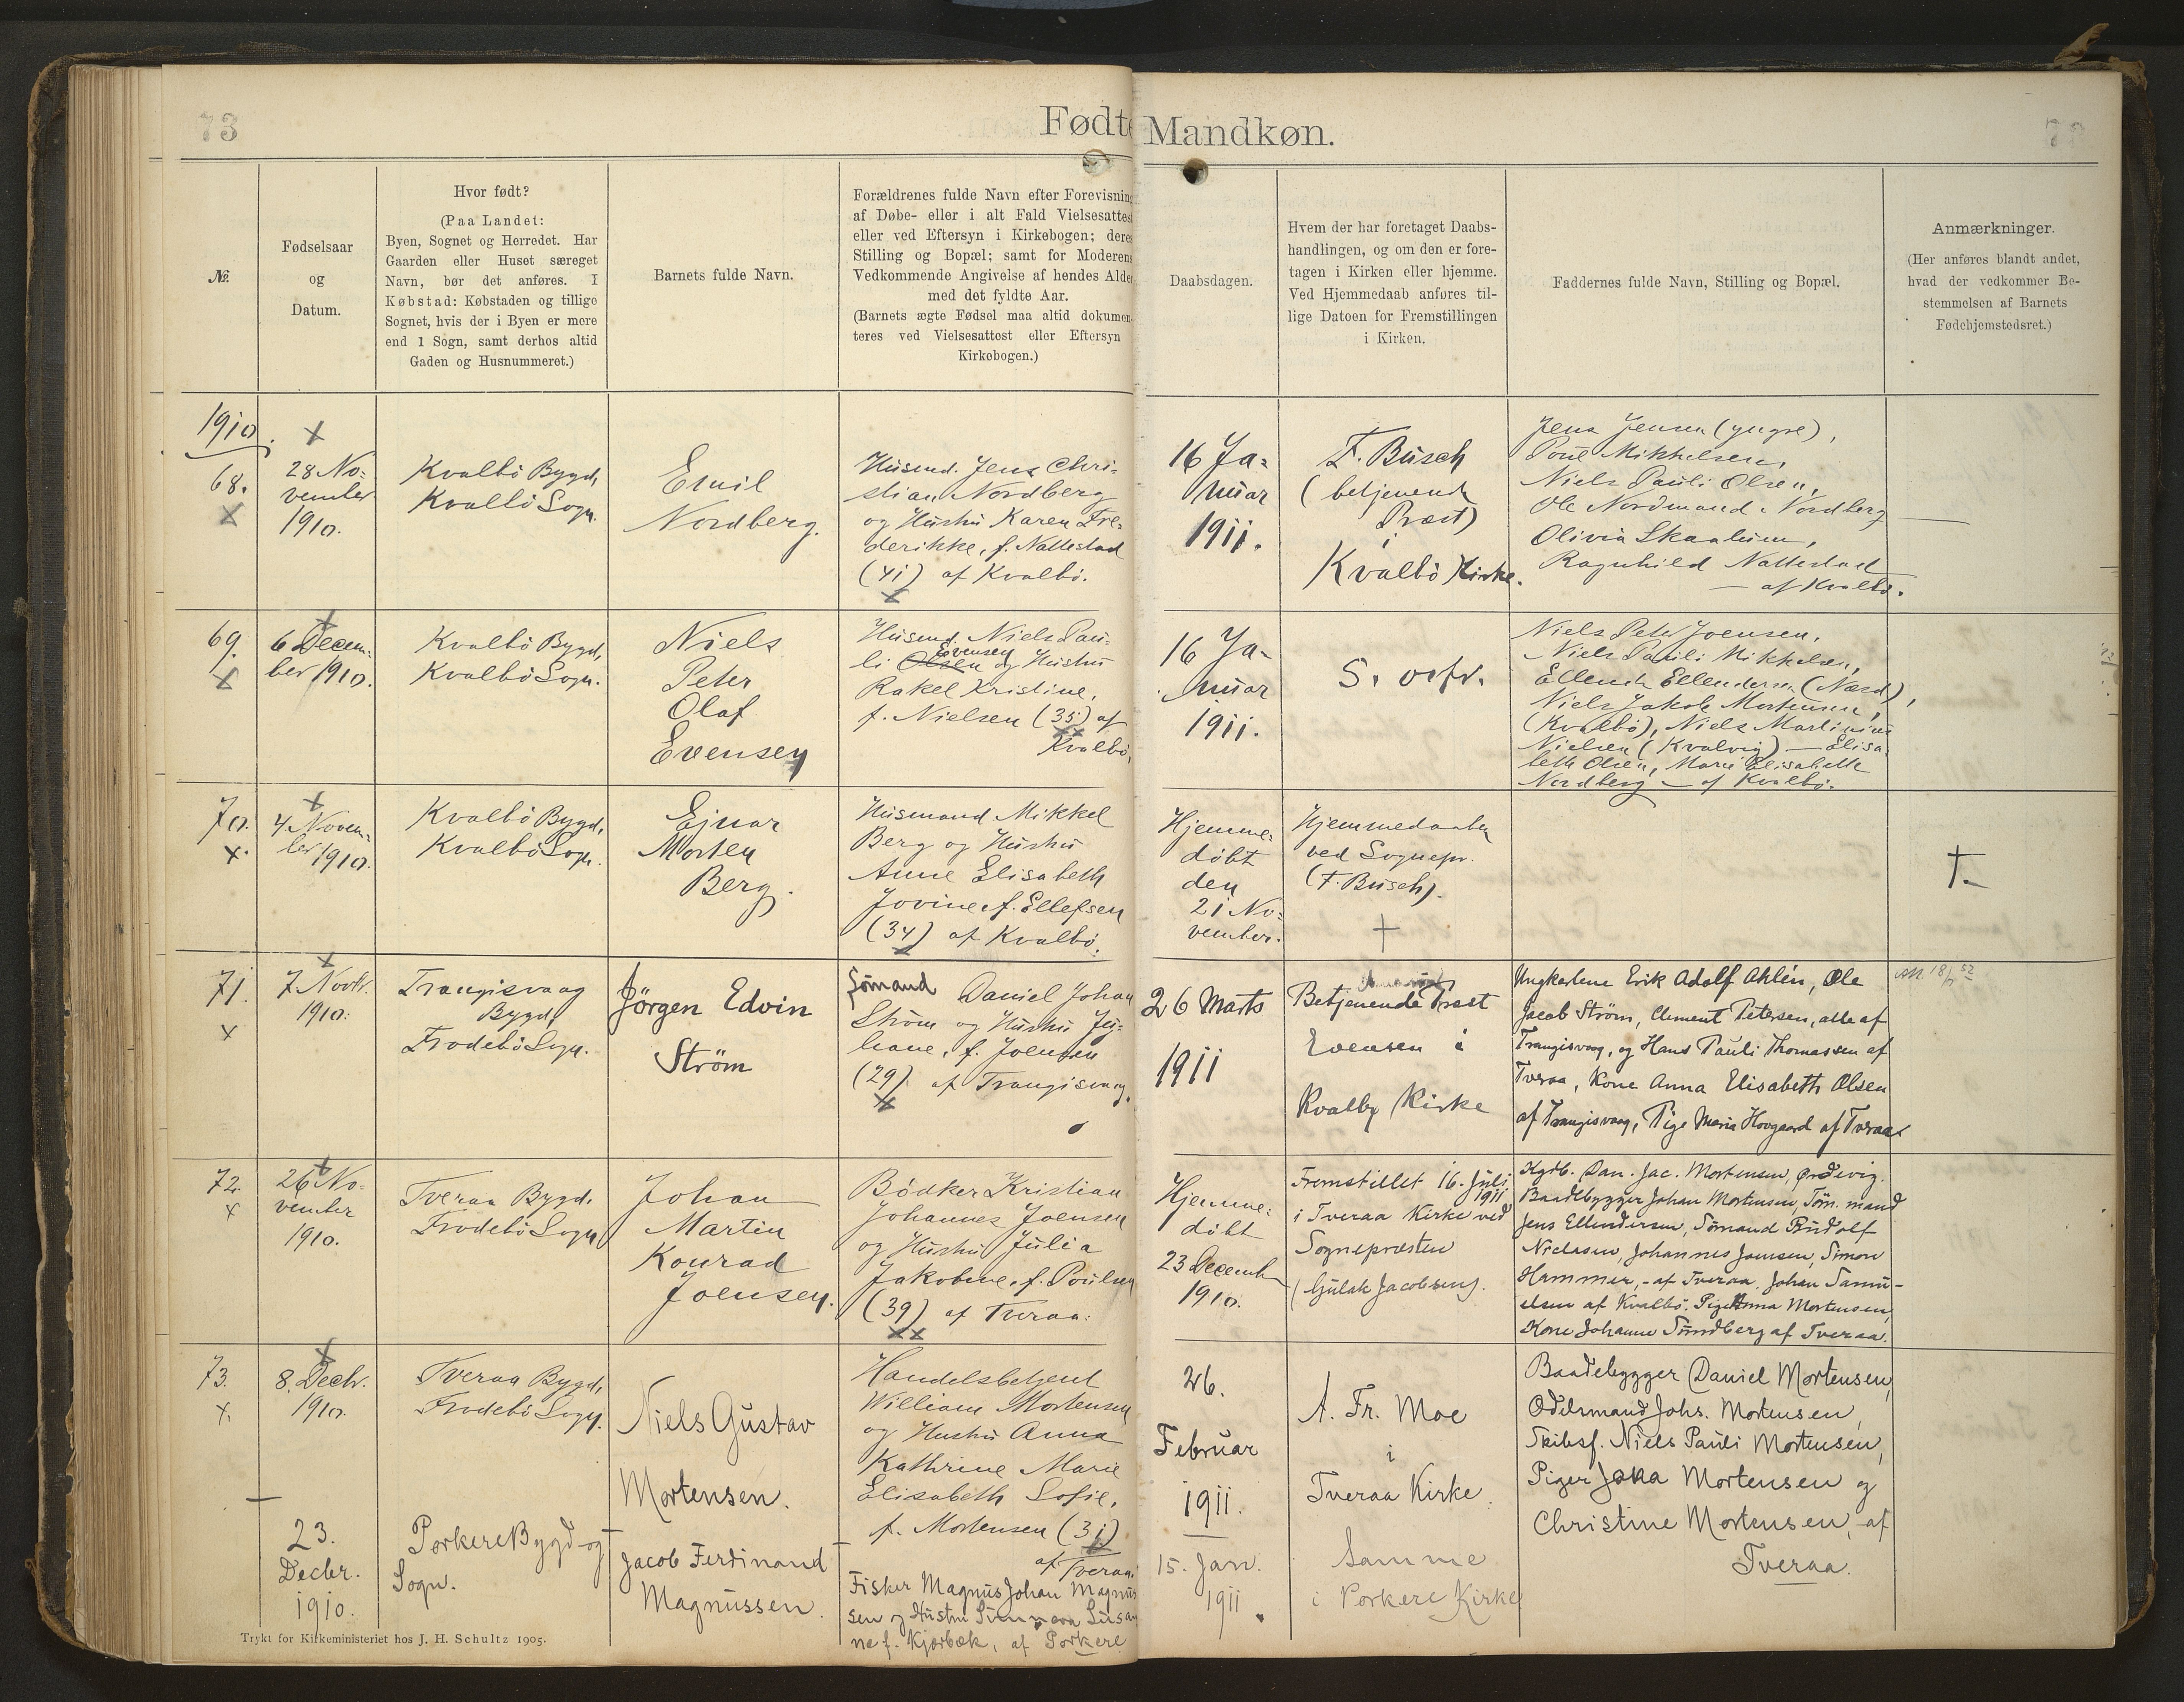 73
Fødte
Mandkøn.
73
№.
Fødselsaar
og
Datum.
Hvor født?
(Paa Landet:
Byen, Sognet og Herredet. Har
Gaarden eller Huset særeget
Navn, bør det anføres. I
Købstad: Købstaden og tillige
Sognet, hvis der i Byen er mere
end 1 Sogn, samt derhos altid
Gaden og Husnummeret.)
Barnets fulde Navn.
Forældrenes fulde Navn efter Forevisning
af Døbe- eller i alt Fald Vielsesattest
eller ved Eftersyn i Kirkebogen; deres
Stilling og Bopæl; samt for Moderens
Vedkommende Angivelse af hendes Alder
med det fyldte Aar.
(Barnets ægte Fødsel maa altid dokumen-
teres ved Vielsesattest eller Eftersyn
Kirkebogen.)
Daabsdagen.
Hvem der har foretaget Daabs-
handlingen, og om den er fore-
tagen i Kirken eller hjemme.
Ved Hjemmedaab anføres til-
lige Datoen for Fremstillingen
i Kirken.
Faddernes fulde Navn, Stilling og Bopæl.
Anmærkninger.
(Her anføres blandt andet,
hvad der vedkommer Be-
stemmelsen af Barnets
Fødehjemstedsret.)
1910.
68.
28 No-
vember
1910.
Kvalbö Bygd,
Kvalbö Sogn.
Emil
Nordberg.
Husmd. Jens Chri-
stian Nordberg
og Hustru Karen Fre-
derikke, f. Nattestad
(41) af Kvalbö.
16 Ja-
nuar
1911.
F. Busch
(betjenende
Præst)
i
Kvalbö Kirke.
Jens Jensen (yngre),
Poul Mikkelsen,
Niels Pauli Olsen,
Ole Nordmand Nordberg
Olivia Skaalum,
Ragnhild Nattestad
— af Kvalbö.
69.
6 Decem-
ber 1910.
Kvalbö Bygd,
Kvalbö Sogn.
Niels
Peter
Olaf
Evensen
Husmd. Niels Pau-
Evensen
li Olsen og Hustru
Rakel Kristine,
f. Nielsen (35) af
Kvalbö.
16 Ja-
nuar
1911.
S. ovfr.
Niels Peter Joensen,
Niels Pauli Mikkelsen,
Ellend Ellendersen (Næs),
Niels Jakob Mortensen,
(Kvalbö), Niels Martinus
Nielsen (Kvalvig) — Elisa-
beth Olsen, Marie Elisabeth
Nordberg — af Kvalbö.
70.
4 Novem-
ber 1910.
Kvalbö Bygd,
Kvalbö Sogn.
Ejnar
Morten
Berg.
Husmand Mikkel
Berg og Hustru
Anne Elisabeth
Jovine, f. Ellefsen
(34) af Kvalbö.
Hjemme-
döbt
den
21 No-
vember.
Hjemmedaaben
ved Sognepr.
(F. Busch).
†
†
71.
7 Novbr.
1910.
Trangisvaag
Bygd,
Frodebö Sogn.
Jörgen Edvin
Ström
Sömand Daniel Johan
Ström og Hustru Ju-
liane, f. Joensen
(29) af Trangisvaag.
26 Marts
1911
Betjenende Præst
Evensen i
Kvalby Kirke
Ungkarlene Erik Adolf Ahlén, Ole
Jacob Ström, Clement Petersen, alle af
Trangisvaag, og Hans Pauli Thomassen af
Tveraa, Kone Anna Elisabeth Olsen
af Trangisvaag, Pige Maria Hovgaard af Tveraa
72.
26 No-
vember
1910.
Tveraa Bygd,
Frodebö Sogn
Johan
Martin
Konrad
Joensen.
Bödker Kristian
Johannes Joensen
og Hustru Julia
Jakobine, f. Poulsen
(39) af Tveraa.
Hjemme-
döbt
23 December
1910.
Fremstillet 16. Juli
1911
i Tveraa Kirke ved
Sognepræsten
(Gulak Jacobsen).
Kgdb. Dan. Jac. Mortensen, Ørdevig.
Baadebygger Johan Mortensen, Tömmand
Jens Ellendersen, Sömand Rudolf
Niclasen, Johannes Jensen, Simon
Hammer, - af Tveraa. Johan Samu-
elsen af Kvalbö. Pige Anna Mortensen,
Kone Johanne Sundberg af Tveraa.
73.
8. Decbr.
1910.
Tveraa Bygd,
Frodebö Sogn.
Niels Gustav
Mortensen.
Handelsbetjent
William Mortensen
og Hustru Anna
Kathrine Marie
Elisabeth Sofie,
f. Mortensen (31)
af Tveraa.
26.
Februar
1911.
A. Fr. Moe
i
Tveraa Kirke.
Baadebygger Daniel Mortensen,
Odelsmand Johs. Mortensen,
Skibsf. Niels Pauli Mortensen,
Piger Jaka Mortensen og
Christine Mortensen, af
Tveraa.
—
23.
Decbr.
1910.
Porkere Bygd og
Sogn.
Jacob Ferdinand
Magnussen.
Fisker Magnus Johan Magnus
sen og Hustru Sunneva Susan
ne f. Kjærbæk, af Porkere
15. Jan.
1911.
Samme
i Porkere Kirke
Trykt for Kirkeministeriet hos J. H. Schultz 1905.